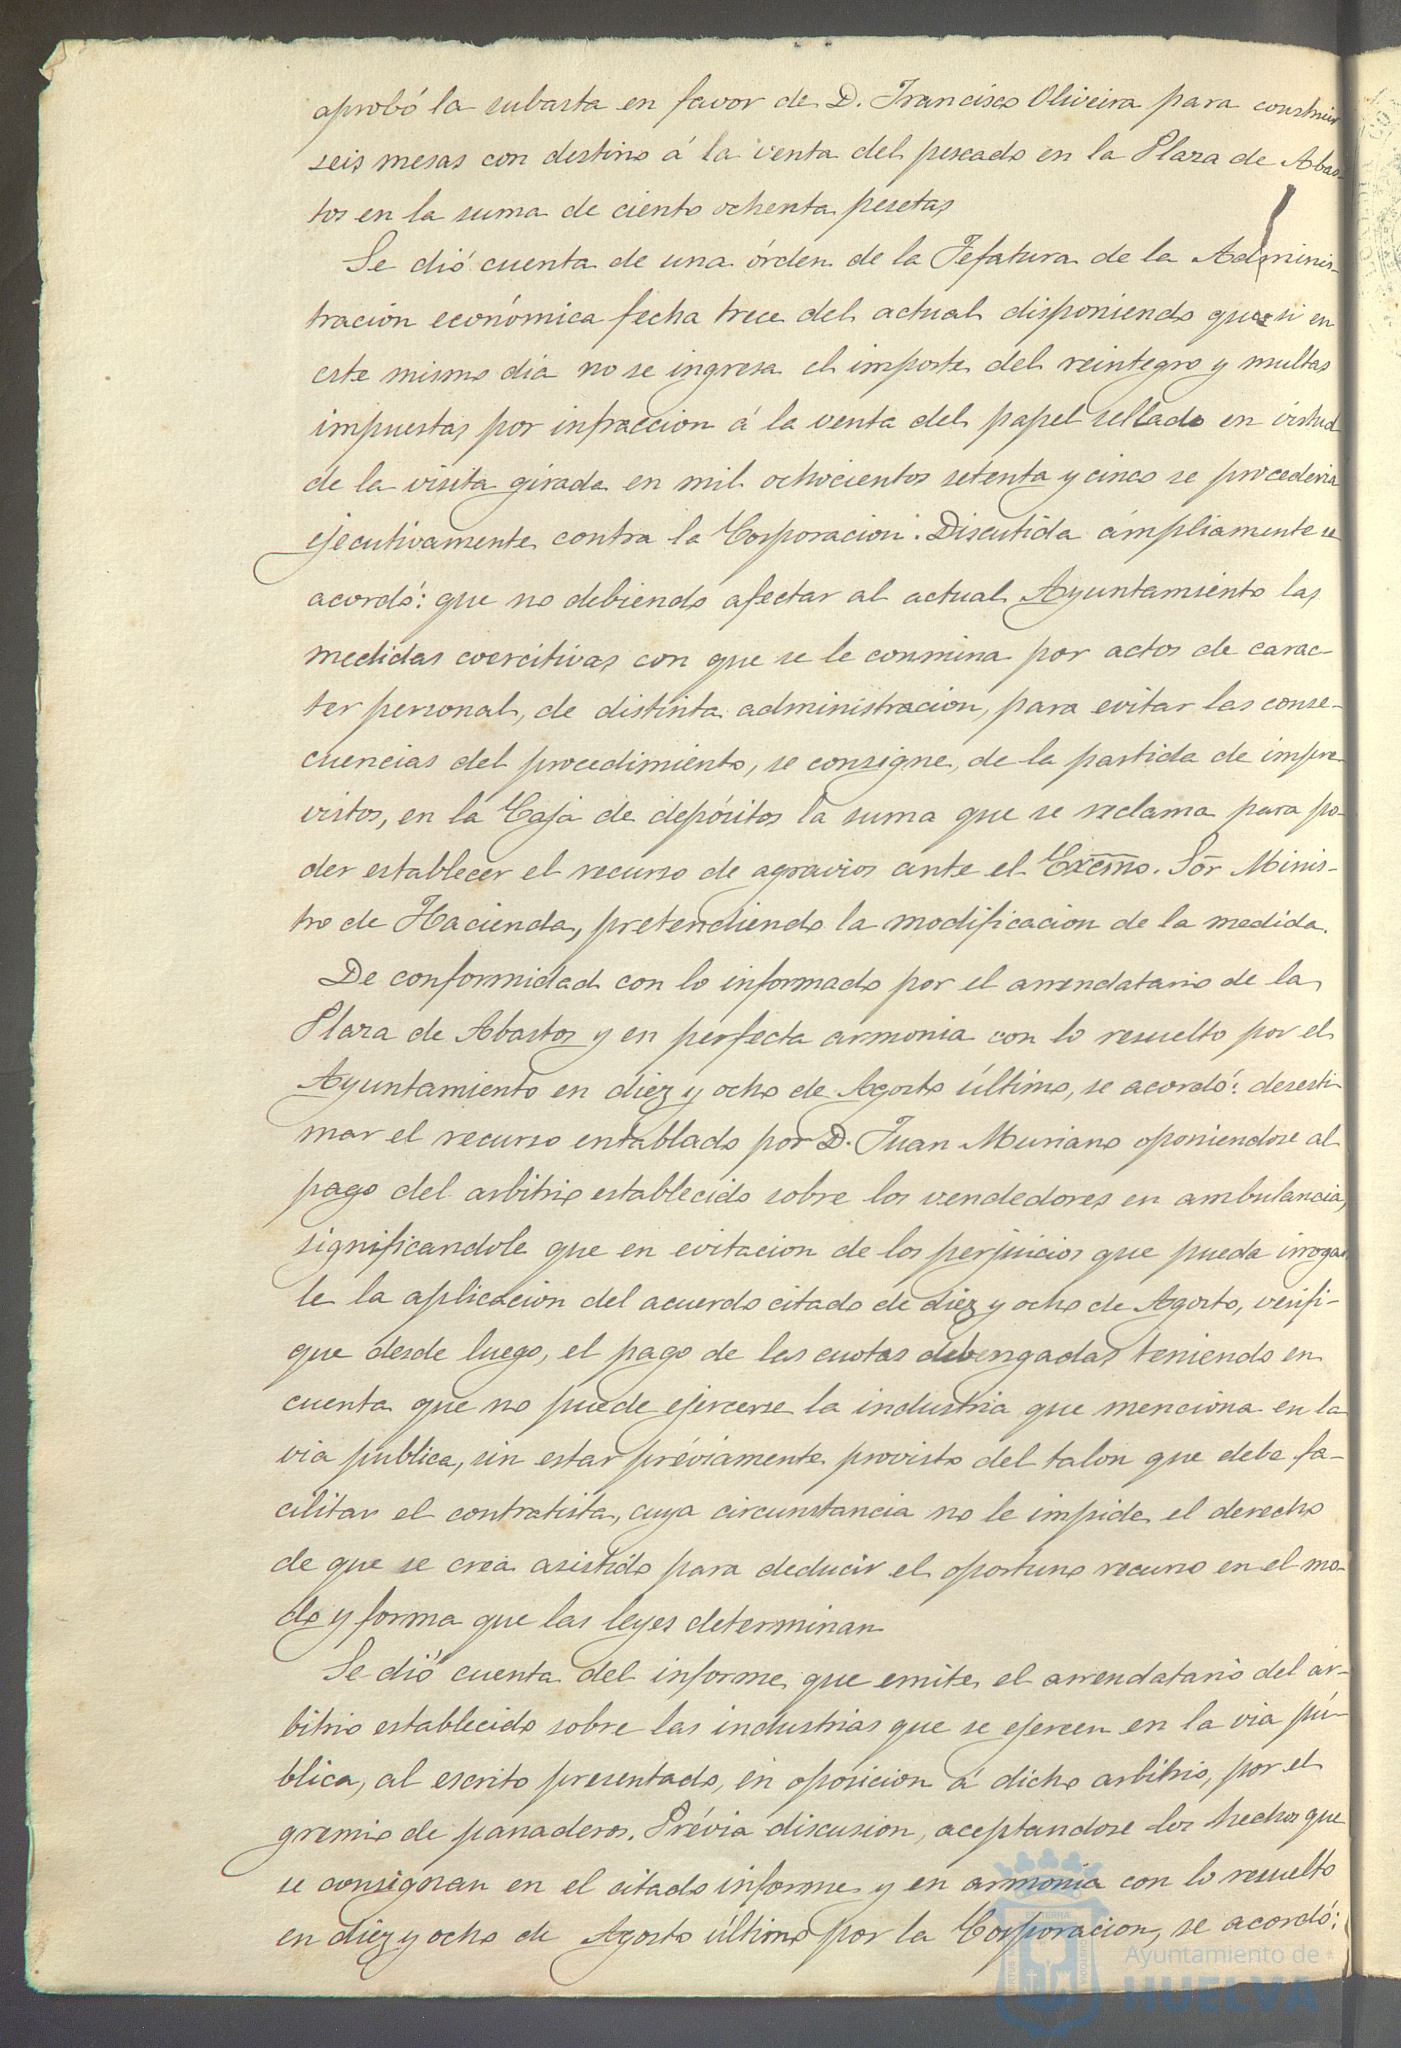 aprobó la subasta en favor de D. Francisco Oliveira para construir
seis mesas con destino á la venta del pescado en la Plaza de Abas-
tos en la suma de ciento ochenta pesetas
Se dió cuenta de una órden de la Jefatura de la Adminis-
tracion económica fecha trece del actual disponiendo que si en
este mismo dia no se ingresa el importe del reintegro y multas
impuestas por infraccion á la venta del papel sellado en virtud
de la visita girada en mil ochocientos setenta y cinco se procederia
ejecutivamente contra la Corporacion. Discutida ámpliamente se
acordó: que no debiendo afectar al actual Ayuntamiento las
medidas coercitivas con que se le conmina por actos de carac-
ter personal, de distinta administracion, para evitar las conse-
cuencias del procedimiento, se consigne, de la partida de impre-
vistos, en la Caja de depósitos la suma que se reclama para po-
der establecer el recurso de agravios ante el Excmo. Sor Minis-
tro de Hacienda, pretendiendo la modificacion de la medida.
De conformidad con lo informado por el arrendatario de la
Plaza de Abastos y en perfecta armonia con lo resuelto por el
Ayuntamiento en diez y ocho de Agosto último, se acordó: desesti-
mar el recurso entablado por D. Juan Muriano oponiendose al
pago del arbitrio establecido sobre los vendedores en ambulancia,
significandole que en evitacion de los perjuicios que pueda irrogar
le la aplicacion del acuerdo citado de diez y ocho de Agosto, verifi-
que desde luego, el pago de las cuotas debengadas teniendo en
cuenta que no puede ejercerse la industria que menciona en la
via publica, sin estar préviamente provisto del talon que debe fa-
cilitar el contratista, cuya circunstancia no le impide el derecho
de que se crea asistido para deducir el oportuno recurso en el mo-
do y forma que las leyes determinan
Se dió cuenta del informe que emite el arrendatario del ar-
bitrio establecido sobre las industrias que se ejercen en la via pú-
blica, al escrito presentado, en oposicion á dicho arbitrio, por el
gremio de panaderos. Prévia discusion, aceptandose los hechos que
se consignan en el citado informe y en armonia con lo resuelto
en diez y ocho de Agosto último por la Corporacion, se acordó:
Ayuntamiento de
HUELVA